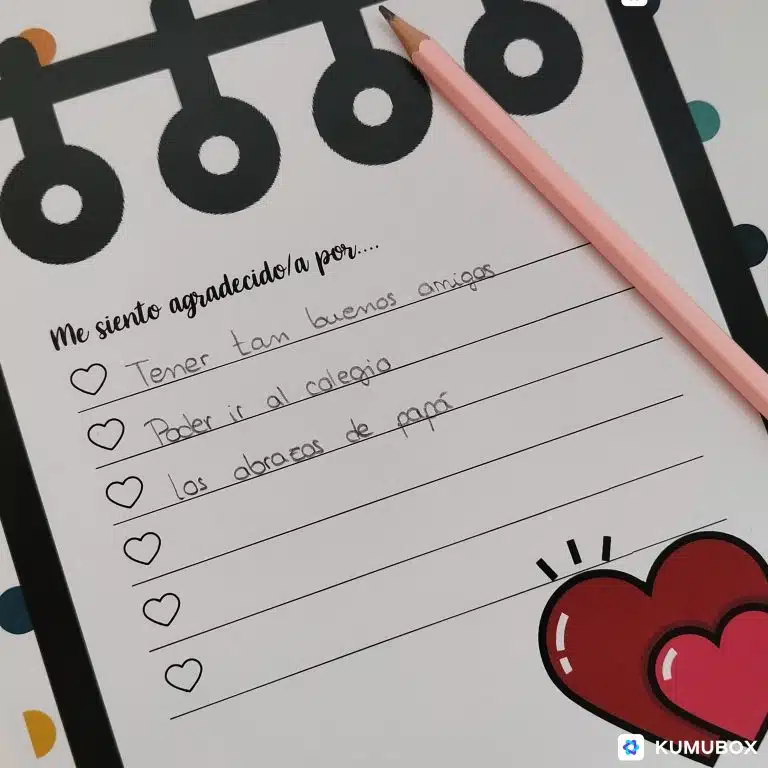 Me siento agradecido/a por....
Tener tan buenos amigos
Poder ir al colegio
los abrazos de papá
KUMUBOX